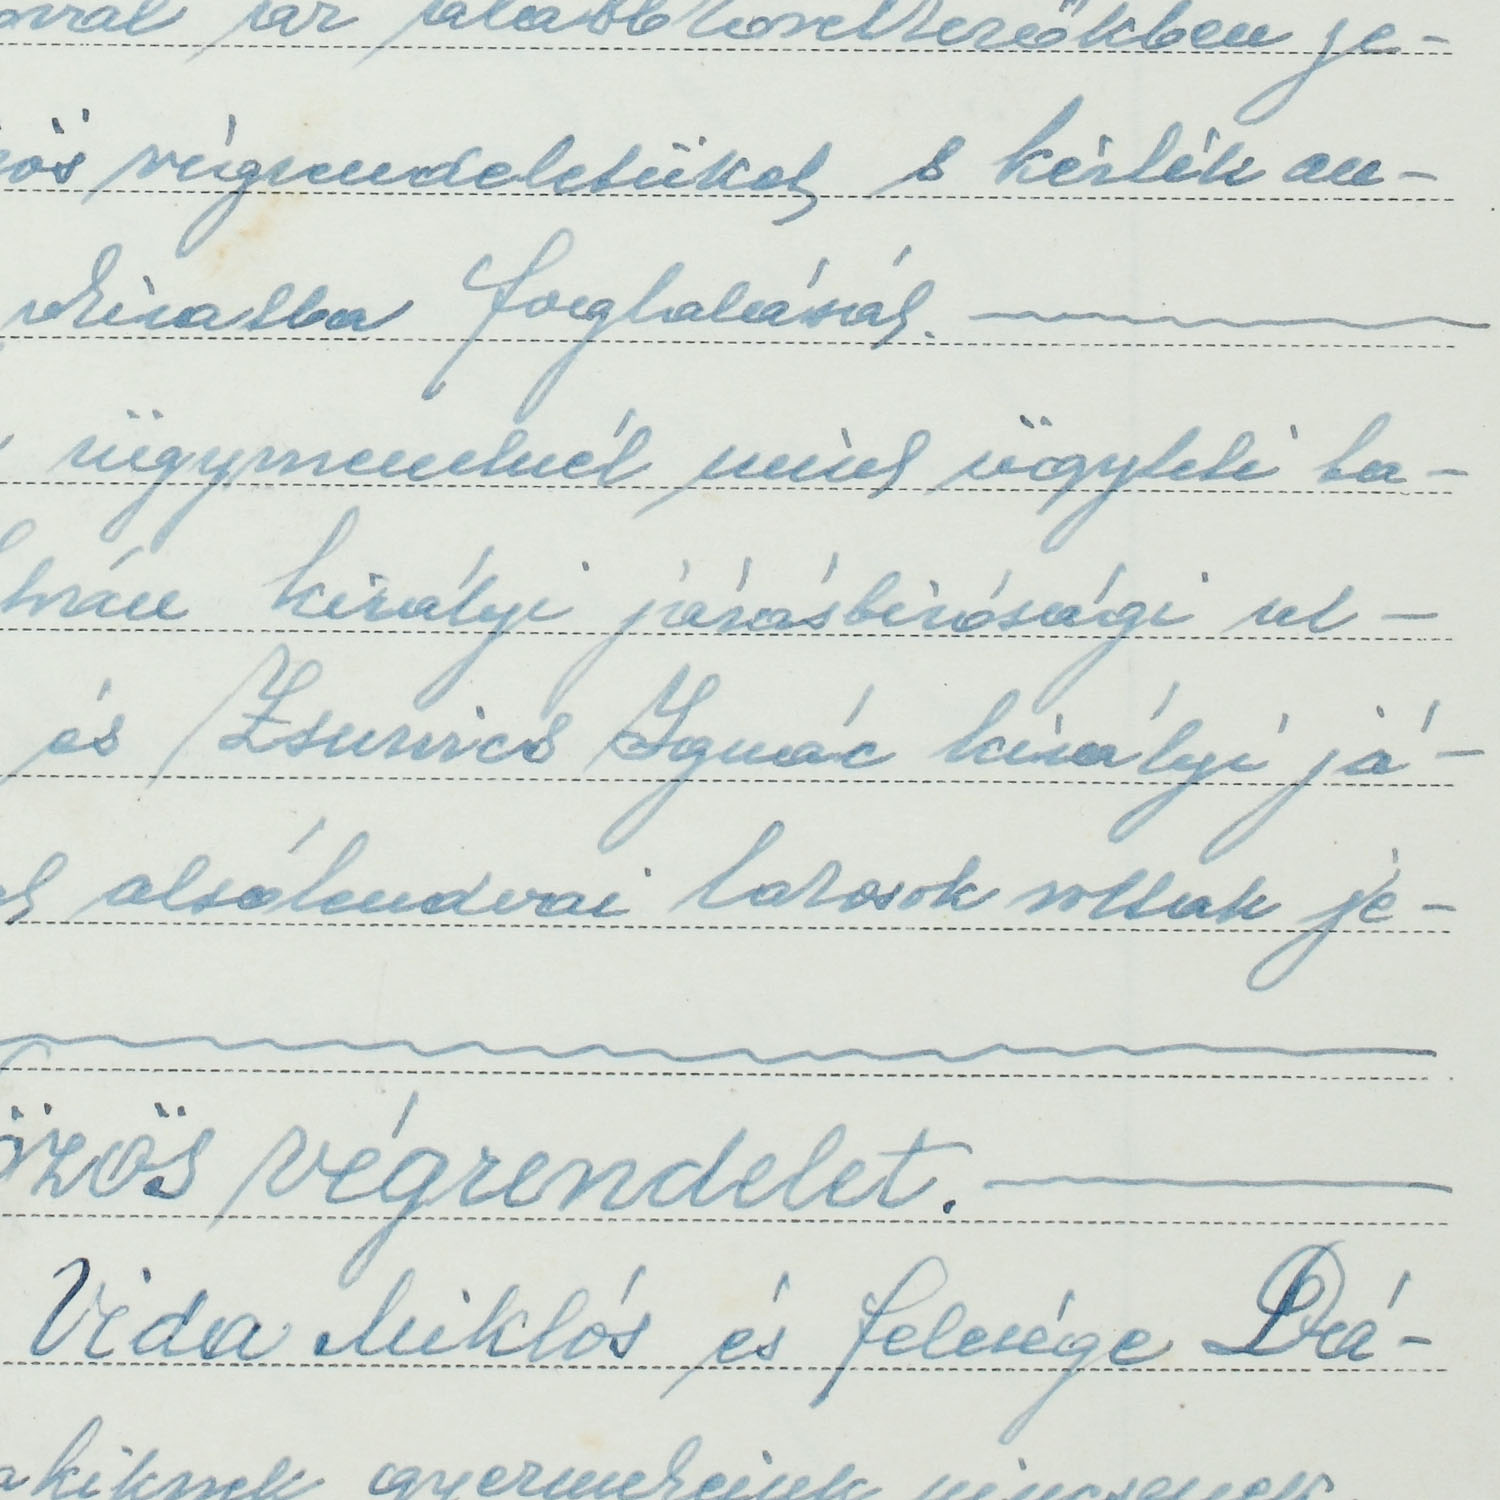 az alább következőkben je-
végrendeletüket s kérték an-
okiratba foglalását.
ügymenetnél mint ügyleti ta-
királyi járásbirósági al-
és Zsunics Ignác királyi já-
alsólendvai lakosok voltak je-
özös végrendelet.
Vida Miklós és felesége Dá-
akiknek gyermekeink nincsenek